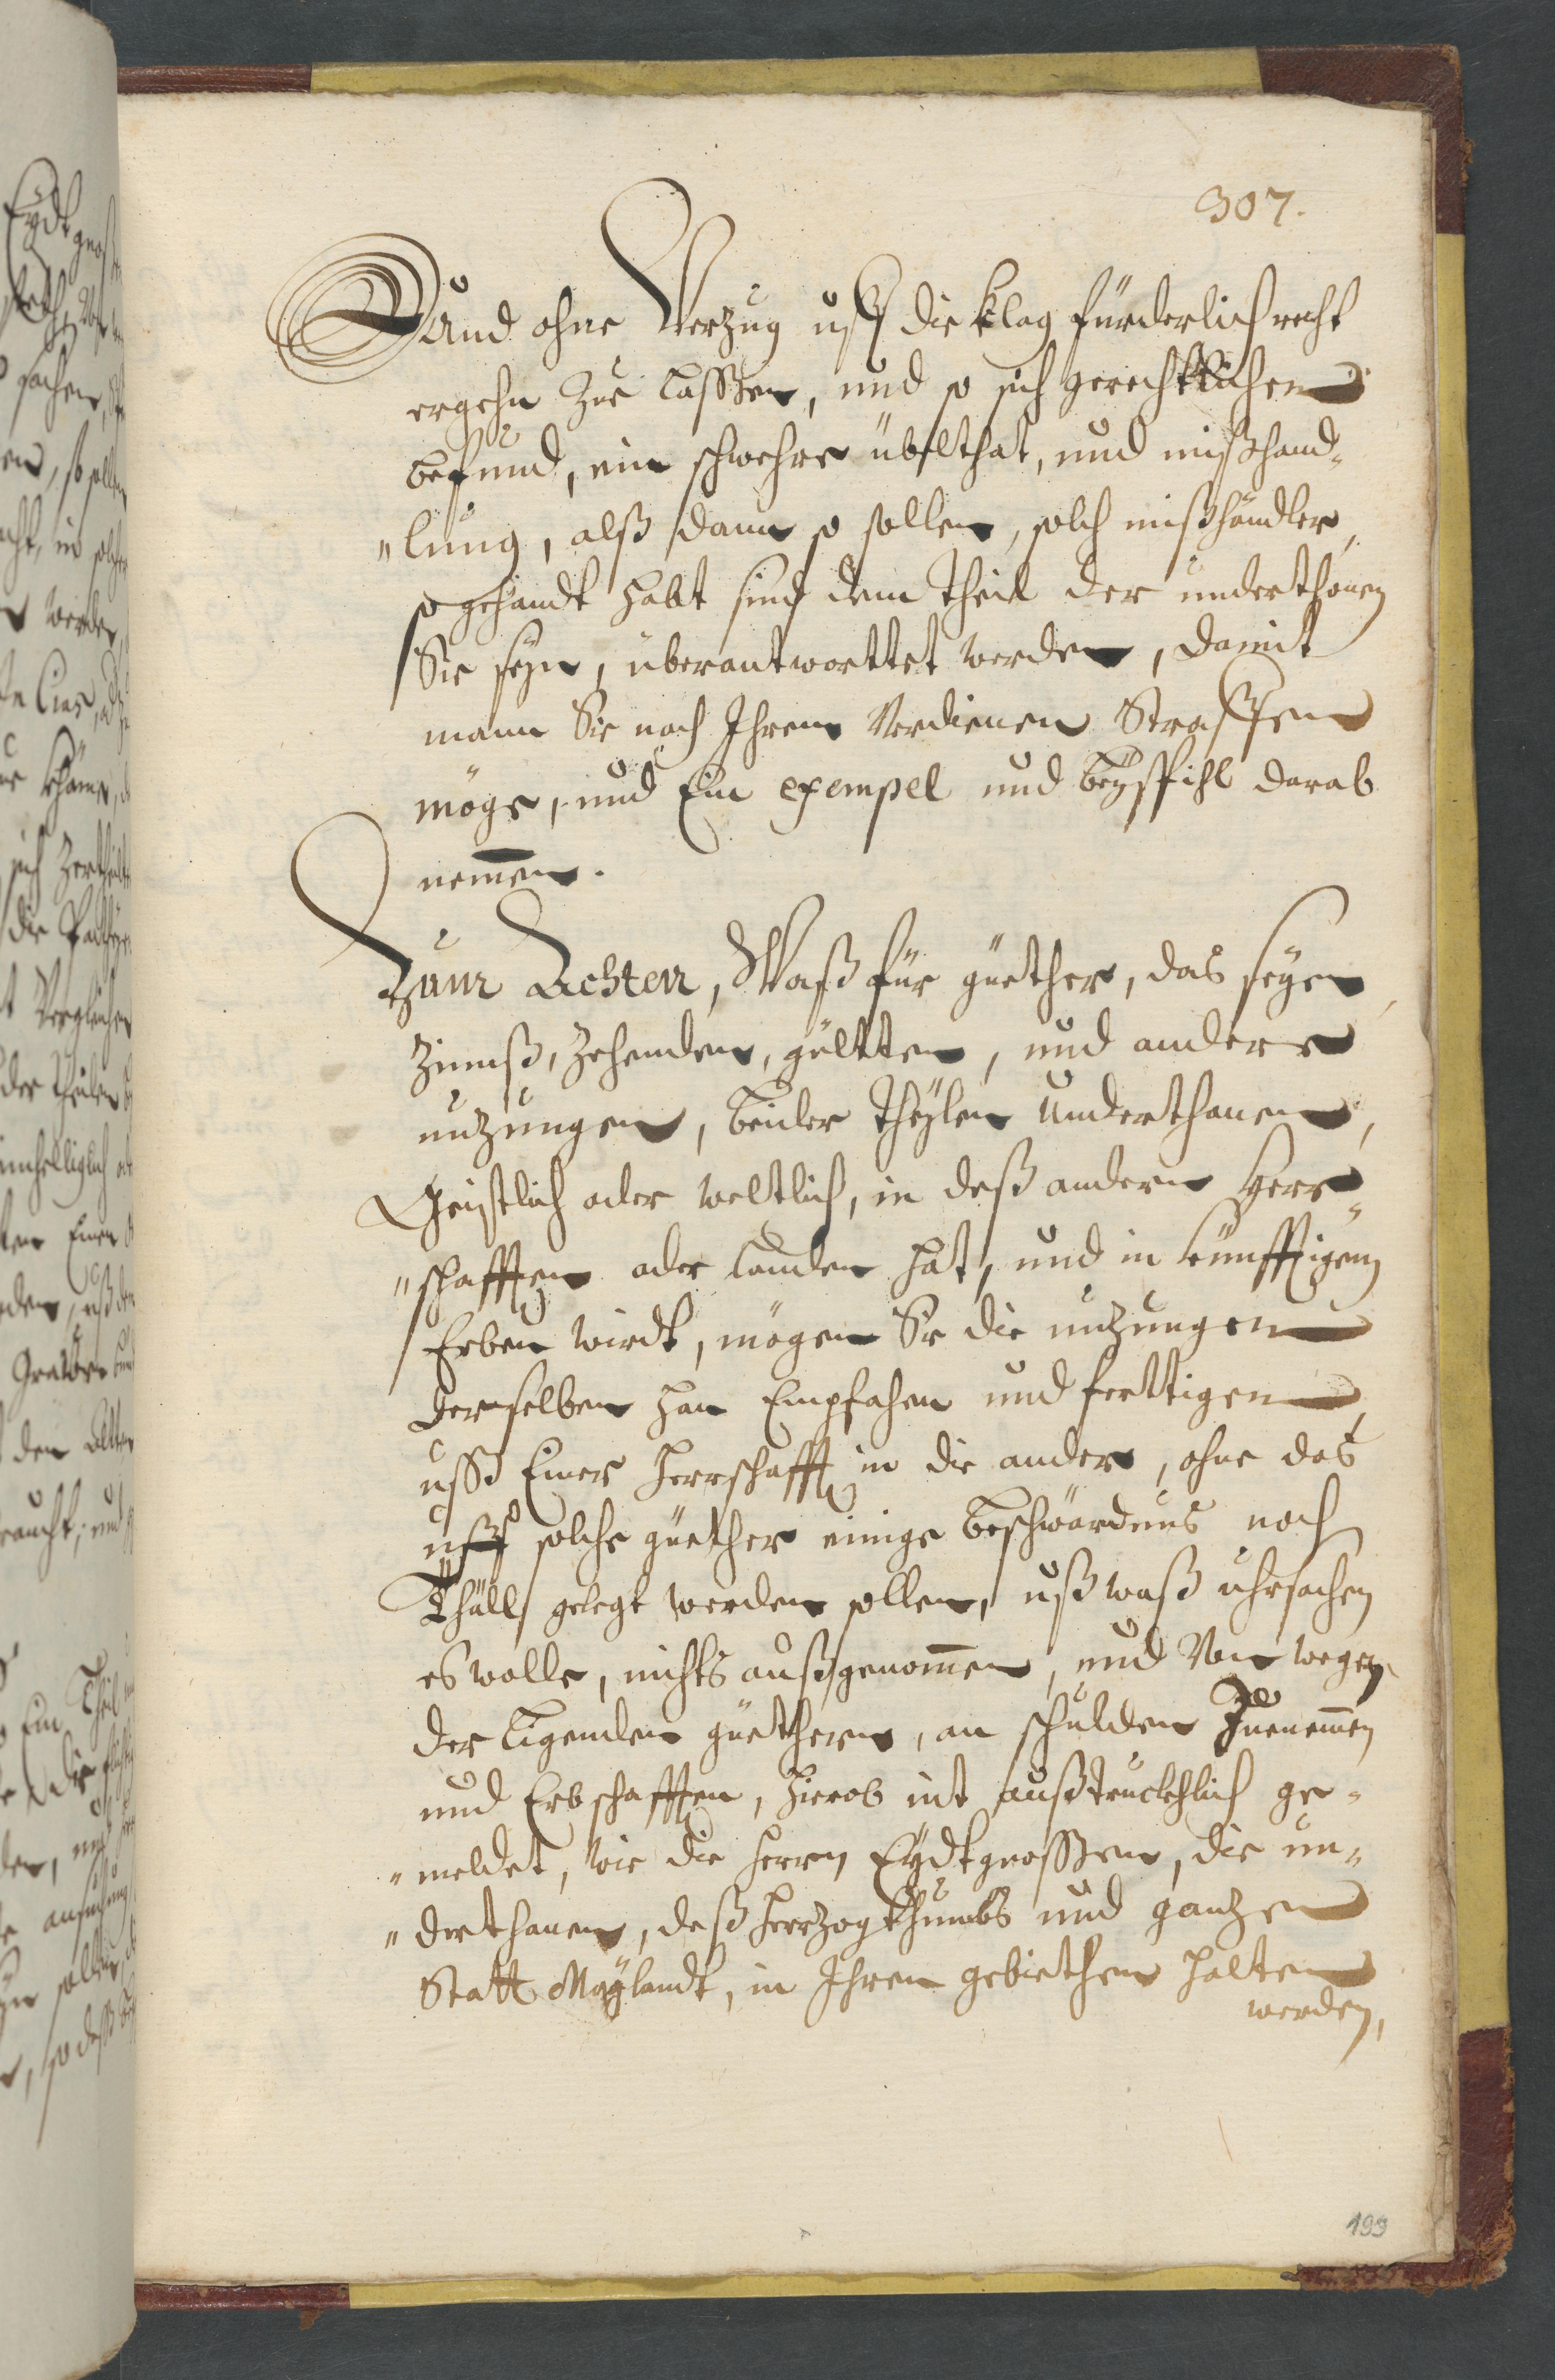 307.
Und ohne Verzug uff die klag fürderlich recht
ergehn zue lassen, und so sich gerechtklichen
befund, ein schwehre übelthat, und mißhand„
„lung, alß dann so sollen, solch mißhändler,
so gehandt habt sind dem theil der underthonen
Sie seyn, überantworttet werden, damit
mann Sie nach Ihrem Verdienen Straffen
möge, und Ein exempel und beÿspihl darab
nemmen.
Zum Achten, Waß für güether, das seyen,
Zinnß, Zehenden, gültten, und andere
nutzungen, beider theÿlen Underthanen,
Geistlich oder weltlich, in deß andern Herr„
„schafften oder landen hat, und in künfftigem
Erben wirdt, mögen Sie die nutzungen
derselben han Empfahen und ferttigen,
uss Einer Herrschafft in die andere, ohne das
uff solche güether einige beschwärdnus noch
thäll gelegt werden sollen, uß waß uhrsachen
es wolle, nichts außgenommen, und Von wegen
der ligenden güethern, an schulden Zuenemmen
und Erbschafften, hierob nit außtruckhlich ge„
„meldet, wie die Herrn Eÿdtgnossen, die un„
„derthanen, deß Herzogthumbs und gantzen
Statt Maÿlandt, in Ihren gebiethen halten
werden,
199